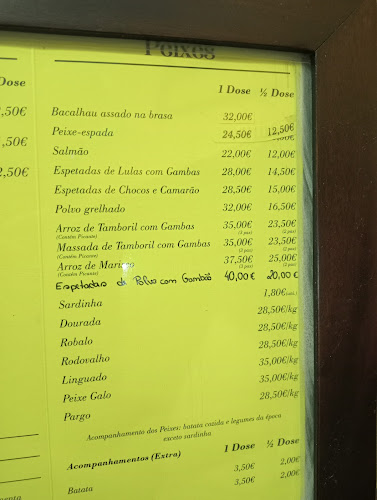 Peixes
Dose
1 Dose ½ Dose
,50€
Bacalhau assado na brasa 32,00€
Peixe-espada 24,50€ 12,50€
,50€
Salmão 22,00€ 12,00€
2,50€
Espetadas de Lulas com Gambas 28,00€ 14,50€
Espetadas de Chocos e Camarão 28,50€ 15,00€
Polvo grelhado 32,00€ 16,50€
Arroz de Tamboril com Gambas 35,00€ 23,50€
(Contém Picante) (2 pax) (2 pax)
Massada de Tamboril com Gambas 35,00€ 23,50€
(Contém Picante) (2 pax) (2 pax)
Arroz de Marisco 37,50€ 25,00€
(Contém Picante) (2 pax) (2 pax)
Espetadas de Polvo com Gambas 40,00€ 20,00€
Sardinha 1,80€
Dourada 28,50€/kg
Robalo 28,50€/kg
Rodovalho 28,50€/kg
Linguado 35,00€/kg
Peixe Galo 35,00€/kg
Pargo 28,50€/kg
Acompanhamento dos Peixes: batata cozida e legumes da época
exceto sardinha
Acompanhamentos (Extra) 1 Dose ½ Dose
3,50€ 2,00€
Batata 3,50€ 2,00€